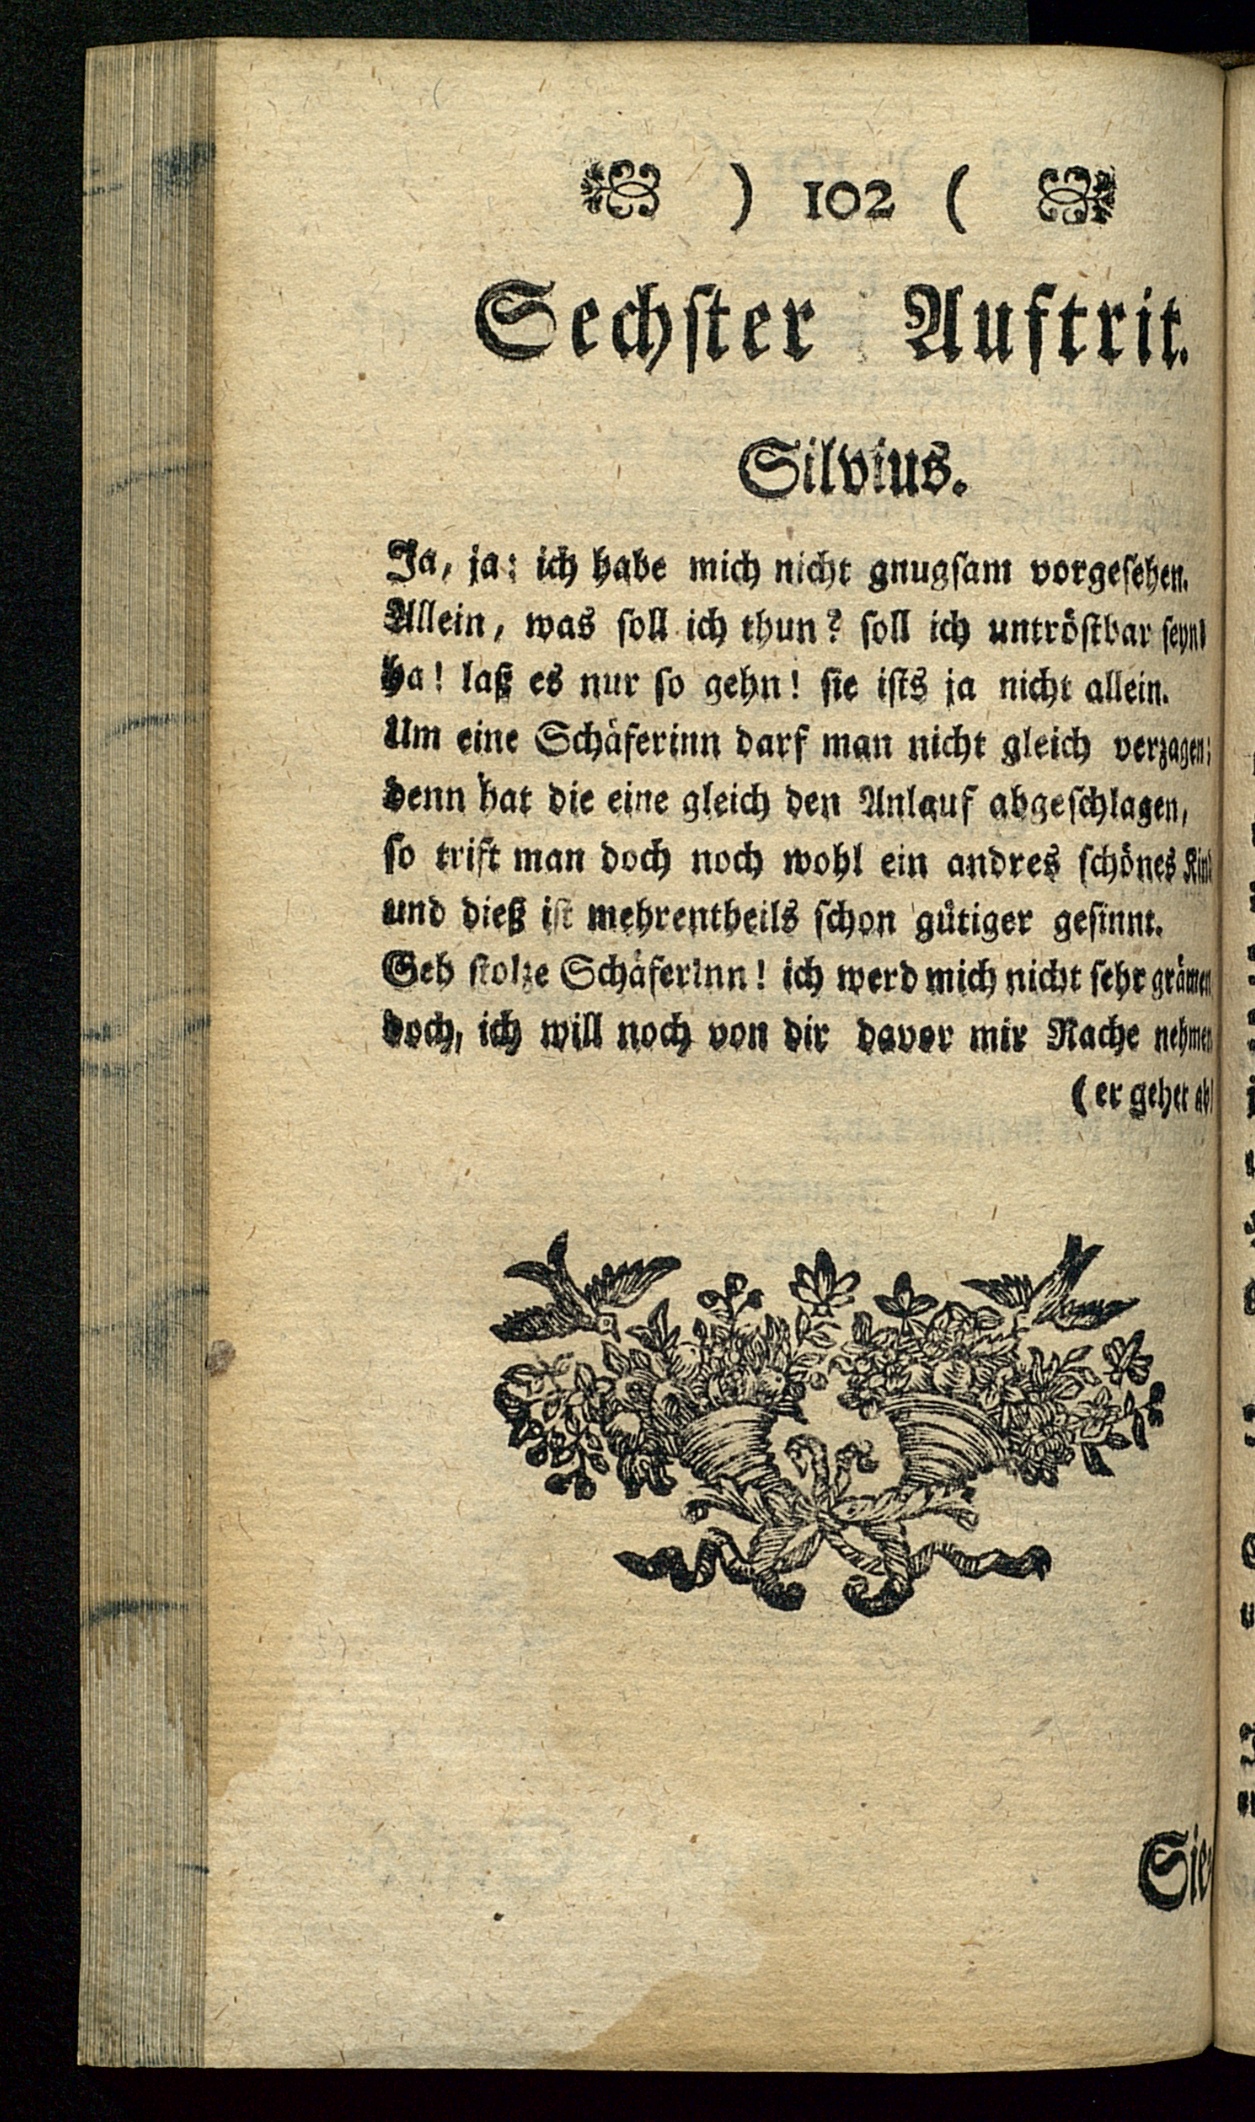 ) 102 (
Sechster Auftrit.
Silvius.
Ja, ja: ich habe mich nicht gnugsam vorgesehen.
Allein, was soll ich thun? soll ich untröstbar seyn?
ha! laß es nur so gehn! sie ists ja nicht allein.
Um eine Schäferinn darf man nicht gleich verzagen;
denn hat die eine gleich den Anlauf abgeschlagen,
so trift man doch noch wohl ein andres schönes Kind
und dieß ist mehrentheils schon gütiger gesinnt.
Geh stolze Schäferinn! ich werd mich nicht sehr grämen
doch, ich will noch von dir davor mir Rache nehmen
(er gehet ab)
Sie-